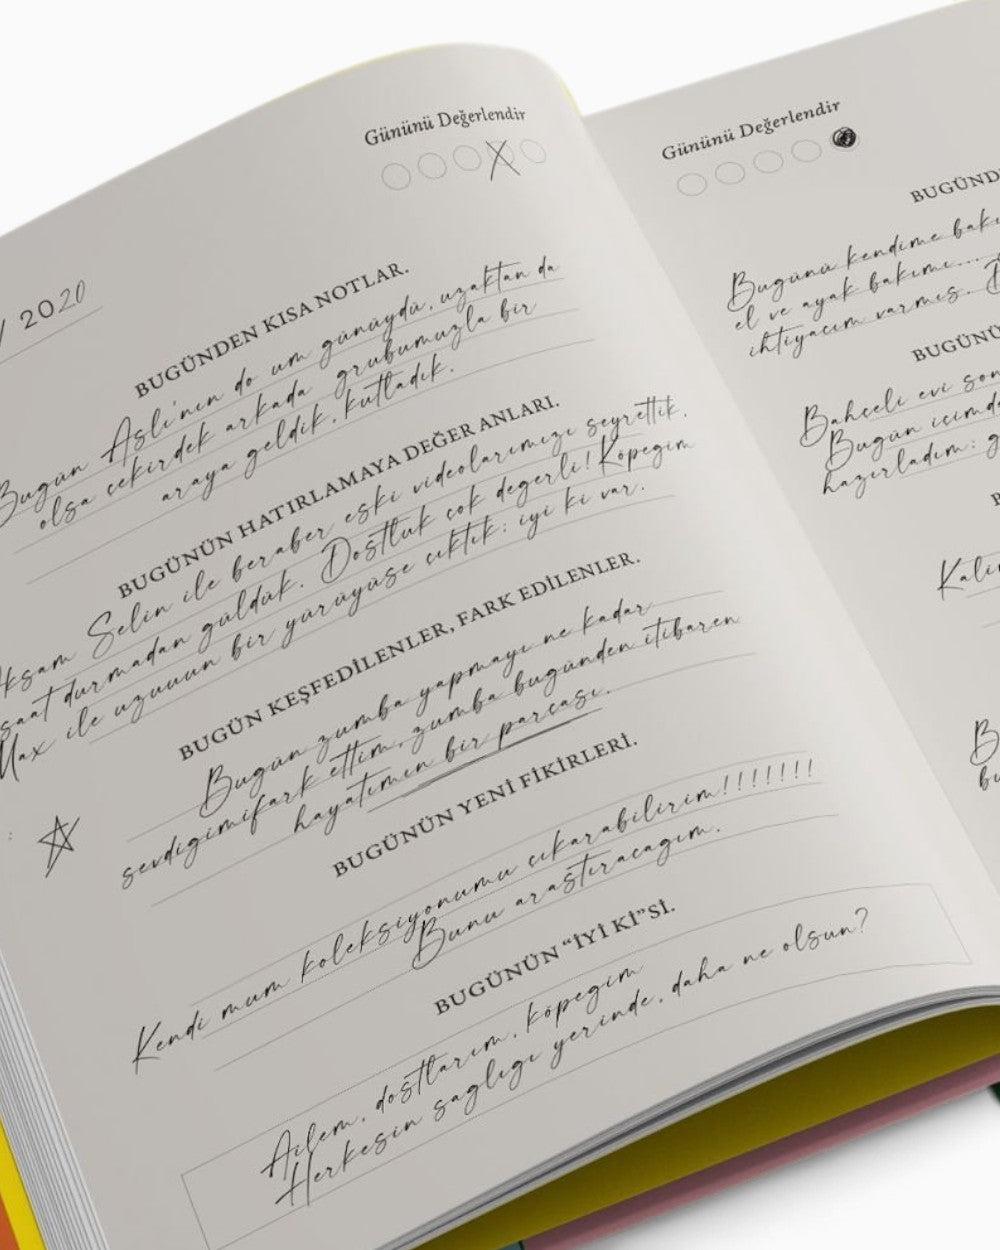 / 2020
Gününü Değerlendir
BUGÜNDEN KISA NOTLAR.
Bugün Aslı'nın do um günüydü, uzaktan da
olsa çekirdek arkada grubumuzla bir
araya geldik, kutladık.
BUGÜNÜN HATIRLAMAYA DEĞER ANLARI.
kşam Selin ile beraber eski videolarımızı seyrettik,
saat durmadan güldük. Dostluk çok degerli! Köpegim
Max ile uzuuun bir yürüyüşe çıktık: iyi ki var.
BUGÜN KEŞFEDİLENLER, FARK EDİLENLER.
Bugün zumba yapmayı ne kadar
sevdigimifark ettim, zumba bugünden itibaren
hayatımın bir parçası.
BUGÜNÜN YENİ FİKİRLERİ.
Kendi mum koleksiyonumu çıkarabilirim!!!!!!!
Bunu arastıracagım.
BUGÜNÜN "İYİ Kİ"Sİ.
Ailem, dostlarım, köpegim
Herkesin saglıgı yerinde, daha ne olsun?
Gününü Değerlendir
BUGÜND
Bugünü kendime bakı
el ve ayak bakımı....
ihtiyacım varmıs.
BUGÜNÜ
Bahçeli evi son
Bugün içimde
hazırladım: g
B
Kalı
B
bu